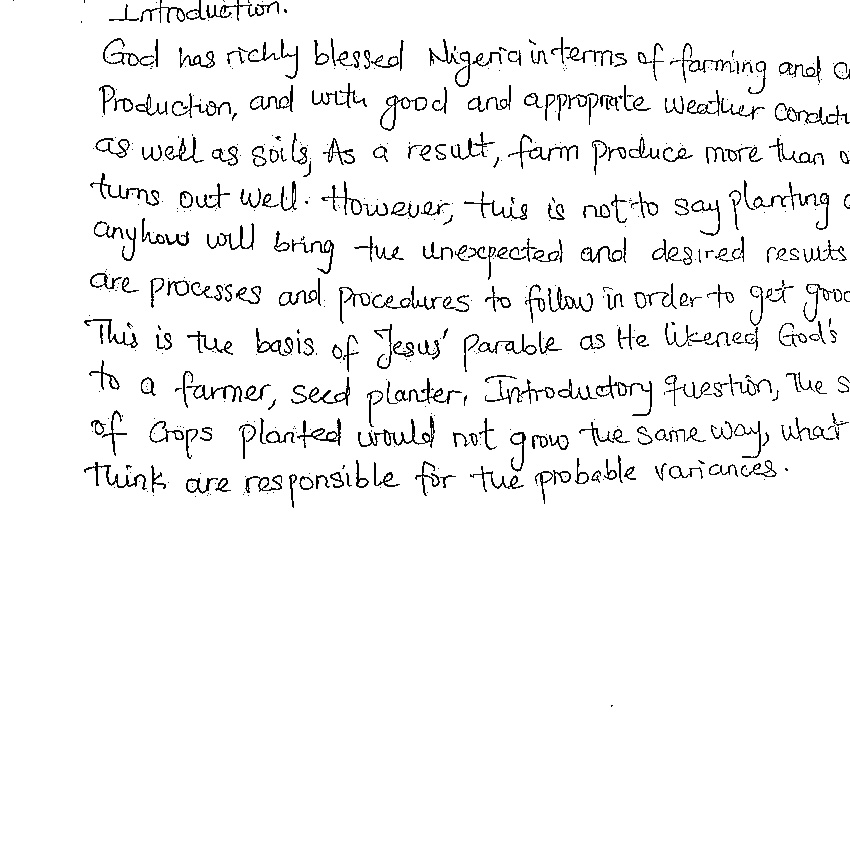 Introduction.
God has richly blessed Nigeria in terms of farming and
Production, and with good and appropriate weather
as well as soils, As a result, farm Produce more than
turns out well. However, this is not to say planting
anyhow will bring the unexpected and desired results
are processes and procedures to follow in order to get
This is the basis of Jesus' Parable as He likened God's
to a farmer, seed planter, Introductory question, The
of Crops planted would not grow the same way, what
think are responsible for the probable variances.